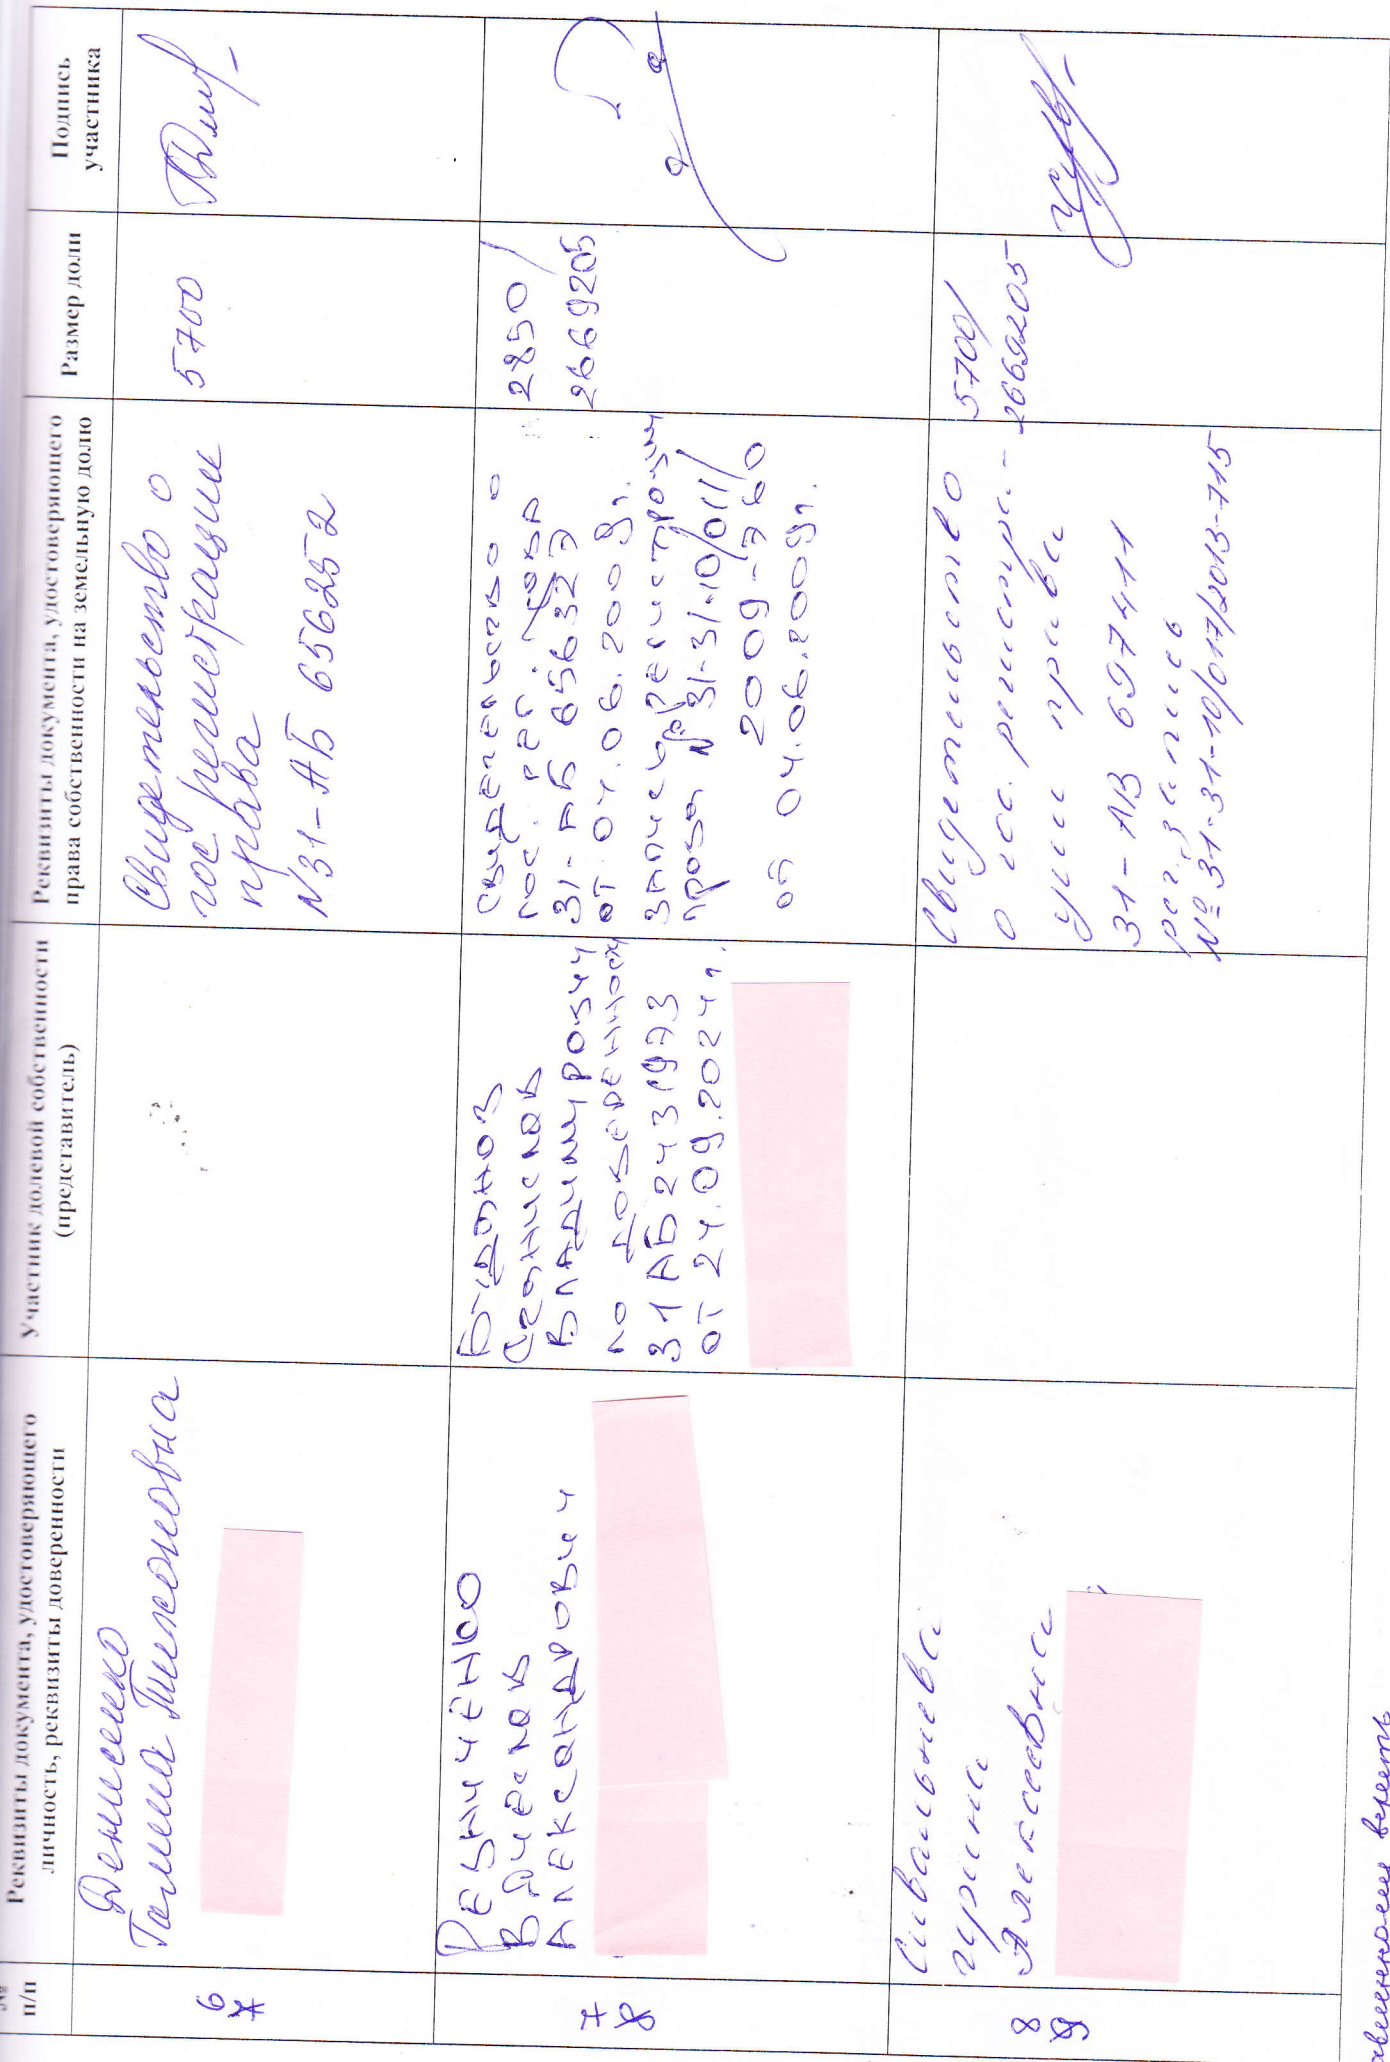 №
п/п
Реквизиты документа, удостоверяющего
личность, реквизиты доверенности
Участник долевой собственности
(представитель)
Реквизиты документа, удостоверяющего
права собственности на земельную долю
Размер доли
Подпись
участника
6
7
Денисенко
Галина Тихоновна
Свидетельство о
гос регистрации
права
N31-АБ 656252
5700
7
8
РЕЗНИЧЕНКО
ВЯЧЕСЛАВ
АЛЕКСАНДРОВИЧ
Богданов
Станислав
Владимирович
по доверенности
31 АБ 2431973
от 24.09.2024г.
свидетельство о
гос. рег. права
31-АБ 656327
от 04.06.2009г.
запись регистрации
права № 31-31-10/011/
2009-760
от 04.06.2009г.
2850/
2669205
8
9
Сивальнева
Ирина
Алексеевна
Свидетельство
о гос. регистра-
ции права
31-АВ 697411
рег. запись
№ 31-31-10/017/2013-715
5700/
2669205